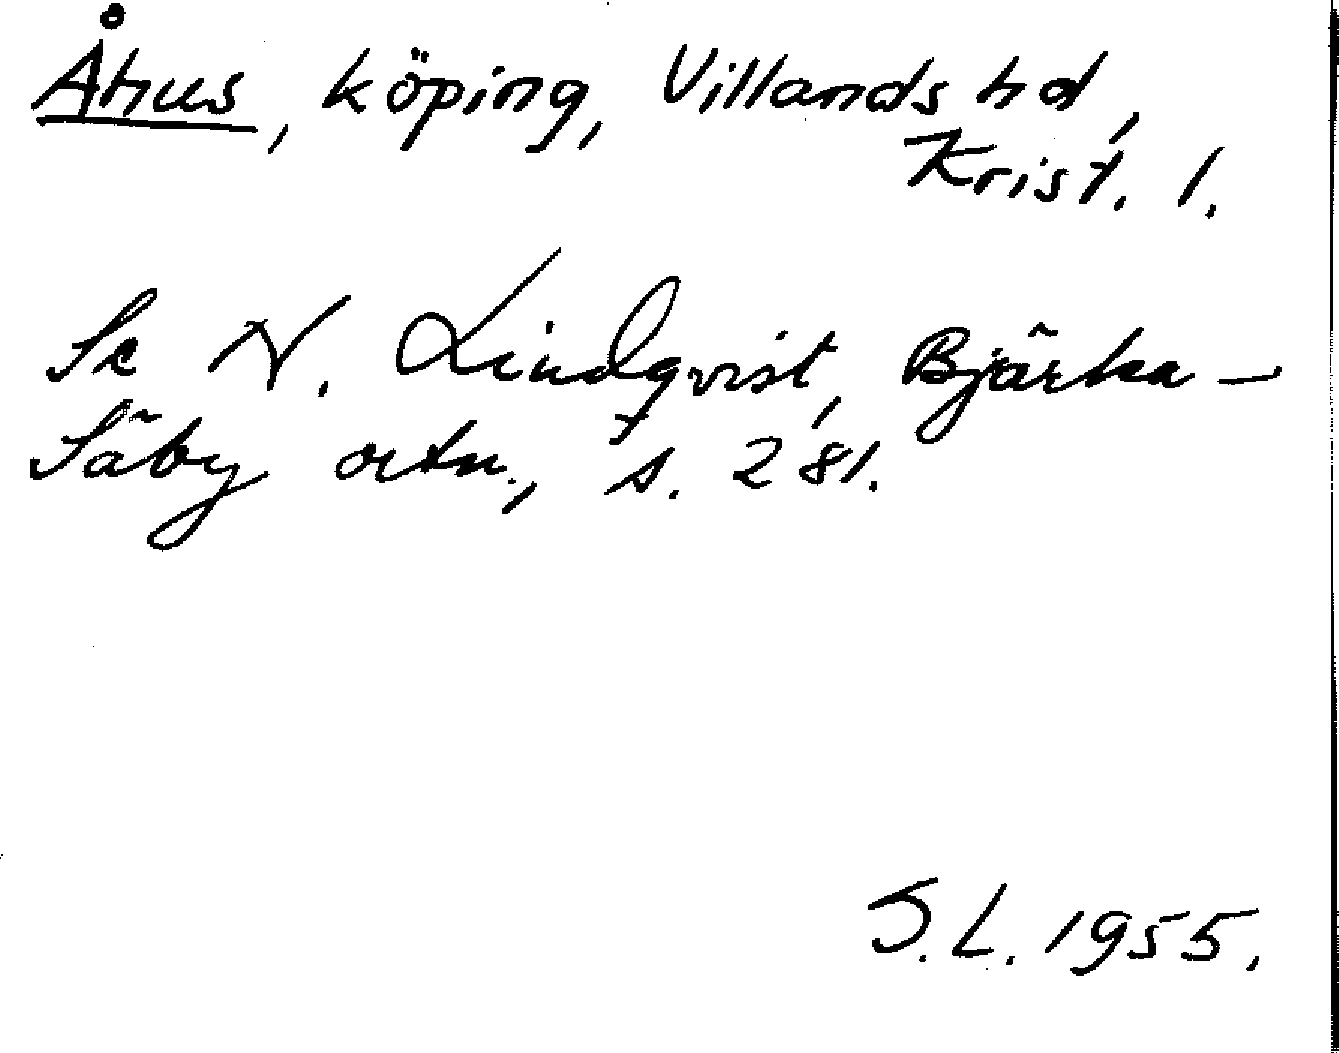 Åhus, köping, Villands hd,
Krist. l.
Se N. Lindqvist, Bjärka-
Säby ortn., s. 281.
S.L. 1955.